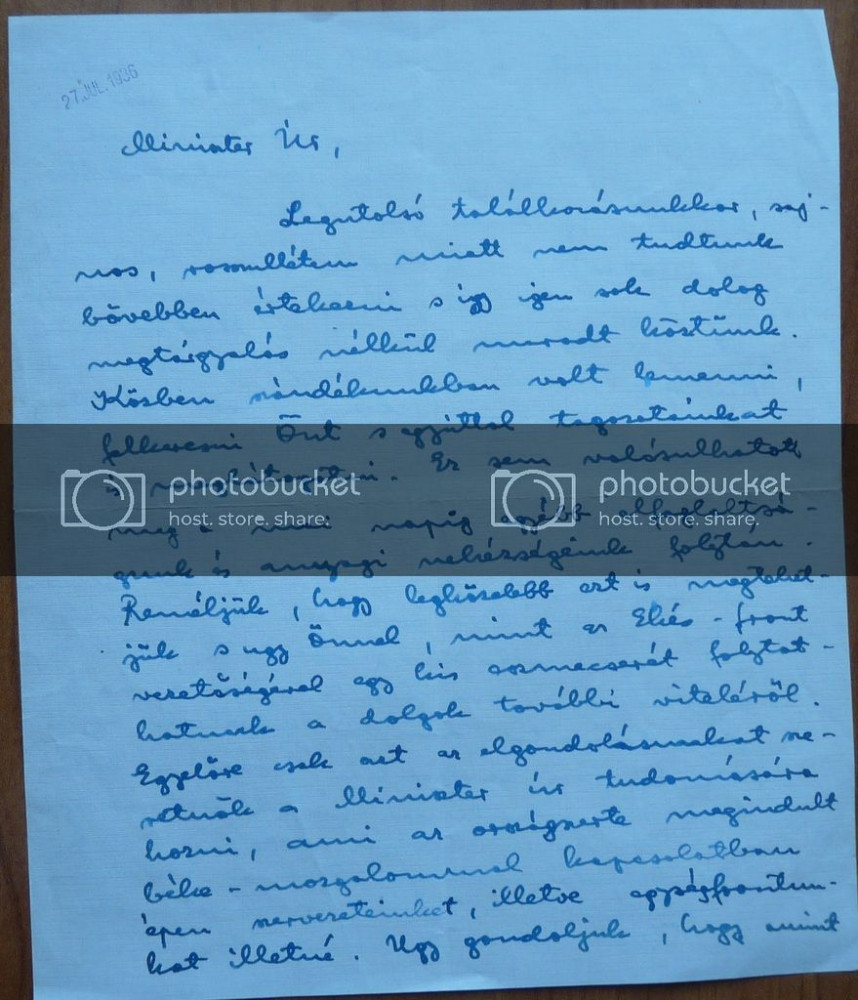 27. JUL. 1936
Minister Úr,
Legutolsó találkozásunkkor, saj-
nos, rosszullétem miatt nem tudtunk
bővebben értekezni s így igen sok dolog
megtárgyalás nélkül maradt köztünk.
Közben szándékunkban volt lemenni,
felkeresni Önt s egyúttal tagozatainkat
is meglátogatni. Ez sem valósulhatott
meg a mai napig egyébb elfoglaltsá-
gunk és anyagi nehézségeink folytán.
Reméljük, hogy legközelebb ezt is megtehet-
jük s ugy Önnel, mint az Ekés-front
vezetőségével egy kis eszmecserét folytat-
hatunk a dolgok további viteléről.
Egyelőre csak azt az elgondolásunkat sze-
retnők a Minister úr tudomására
hozni, ami az országszerte megindult
béke-mozgalommal kapcsolatban
épen szervezeteinket, illetve egységfrontun-
kat illetné. Ugy gondoljuk, hogy amint
photobucket
host. store. share.
photobucket
host. store. share.